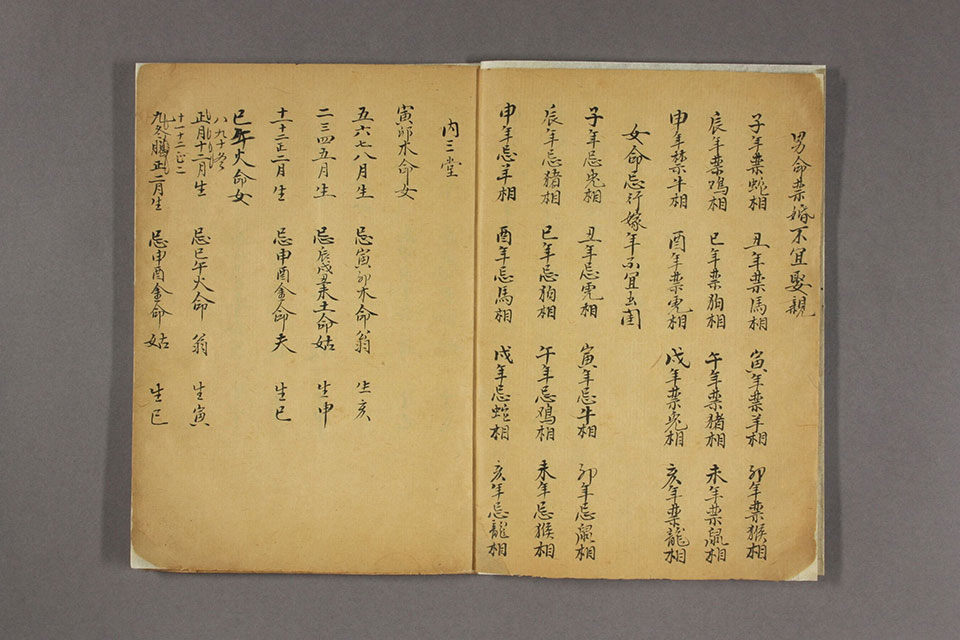 男命禁婚不宜娶親
子年禁蛇相 丑年禁馬相 寅年禁羊相 卯年禁猴相
辰年禁鳮相 巳年禁狗相 午年禁猪相 未年禁鼠相
申年禁牛相 酉年禁虎相 戌年禁兎相 亥年禁龍相
女命忌行嫁年不宜出閨
子年忌兎相 丑年忌虎相 寅年忌牛相 卯年忌鼠相
辰年忌猪相 巳年忌狗相 午年忌鳮相 未年忌猴相
申年忌羊相 酉年忌馬相 戌年忌蛇相 亥年忌龍相
内三堂
寅卯木命女
五六七八月生 忌寅卯木命翁 生亥
二三四五月生 忌辰戌丑未土命姑 生申
十一十二正二月生 忌申酉金命夫 生巳
巳午火命女
八九十
正月十二月生 忌巳午火命翁 生寅
十一十二正二
九冬臘正二月生 忌申酉金命姑 生巳